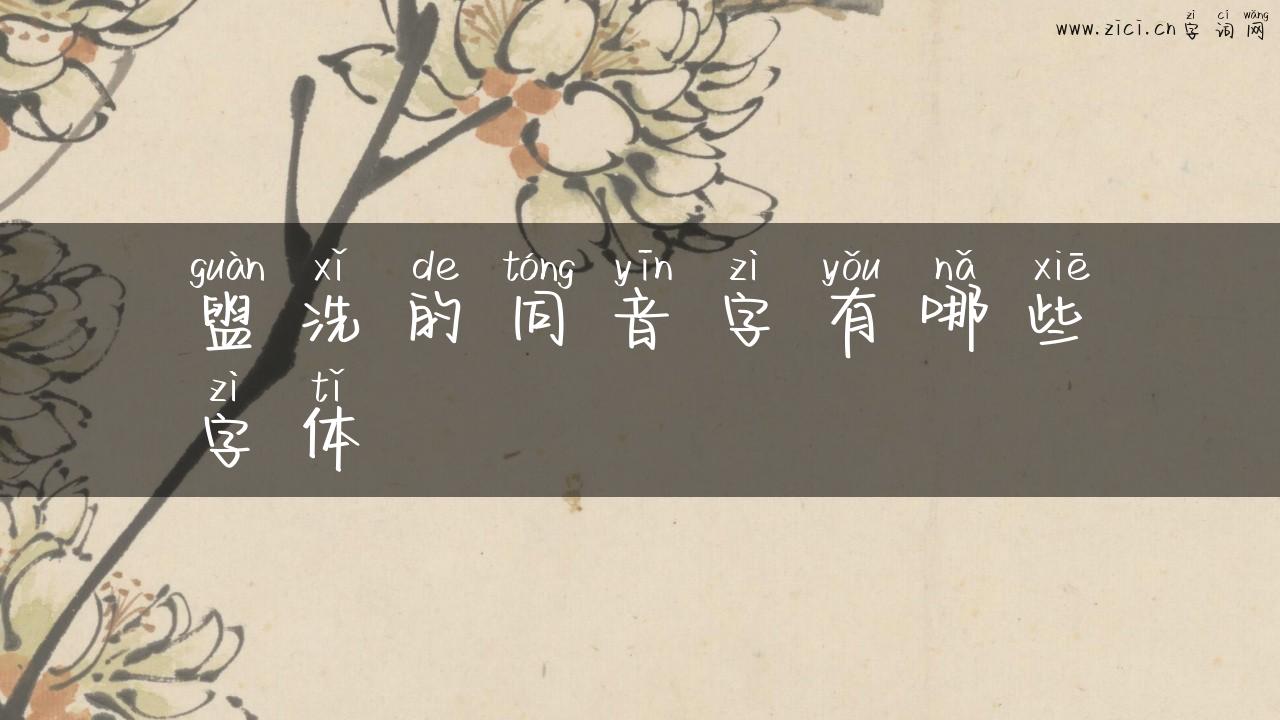 zì cí wǎng
www.zici.cn 字词网
guàn xǐ de tóng yīn zì yǒu nǎ xiē
盥洗的同音字有哪些
zì tǐ
字体